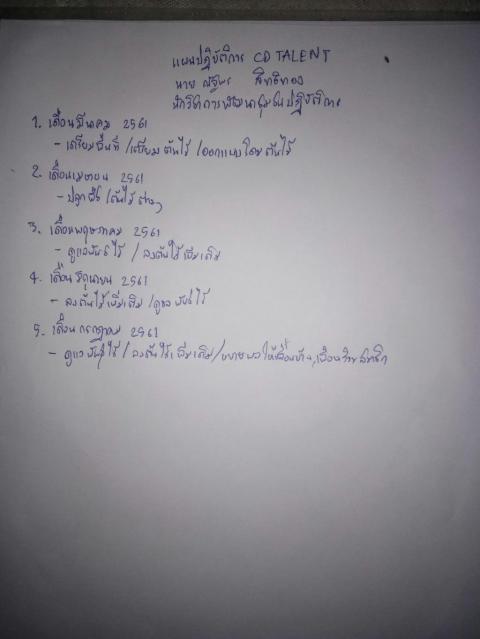 แผนปฏิบัติการ CD TALENT
นาย ณัฐพร สิทธิทอง
นักวิชาการพัฒนาชุมชนปฏิบัติการ
1. เดือนมีนาคม 2561
- เตรียมพื้นที่ /เตรียมต้นไม้ /ออกแบบโดยต้นไม้
2. เดือนเมษายน 2561
- ปลูก /ต้นไม้ต่างๆ
3. เดือนพฤษภาคม 2561
- ดูแลต้นไม้ / ลงต้นไม้เพิ่มเติม
4. เดือนมิถุนายน 2561
- ลงต้นไม้เพิ่มเติม /ดูแลต้นไม้
5. เดือนกรกฎาคม 2561
- ดูแลต้นไม้/ ลงต้นไม้เพิ่มเติม/ขยายผลให้เพื่อนบ้าน,